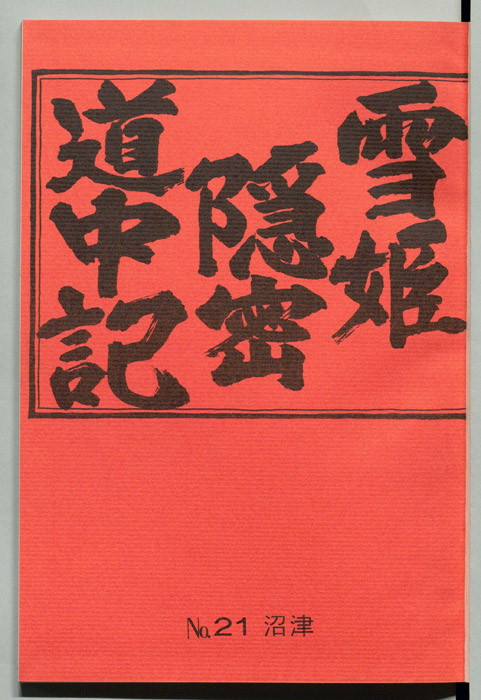 雪姫
隠密
道中記
No.21 沼津